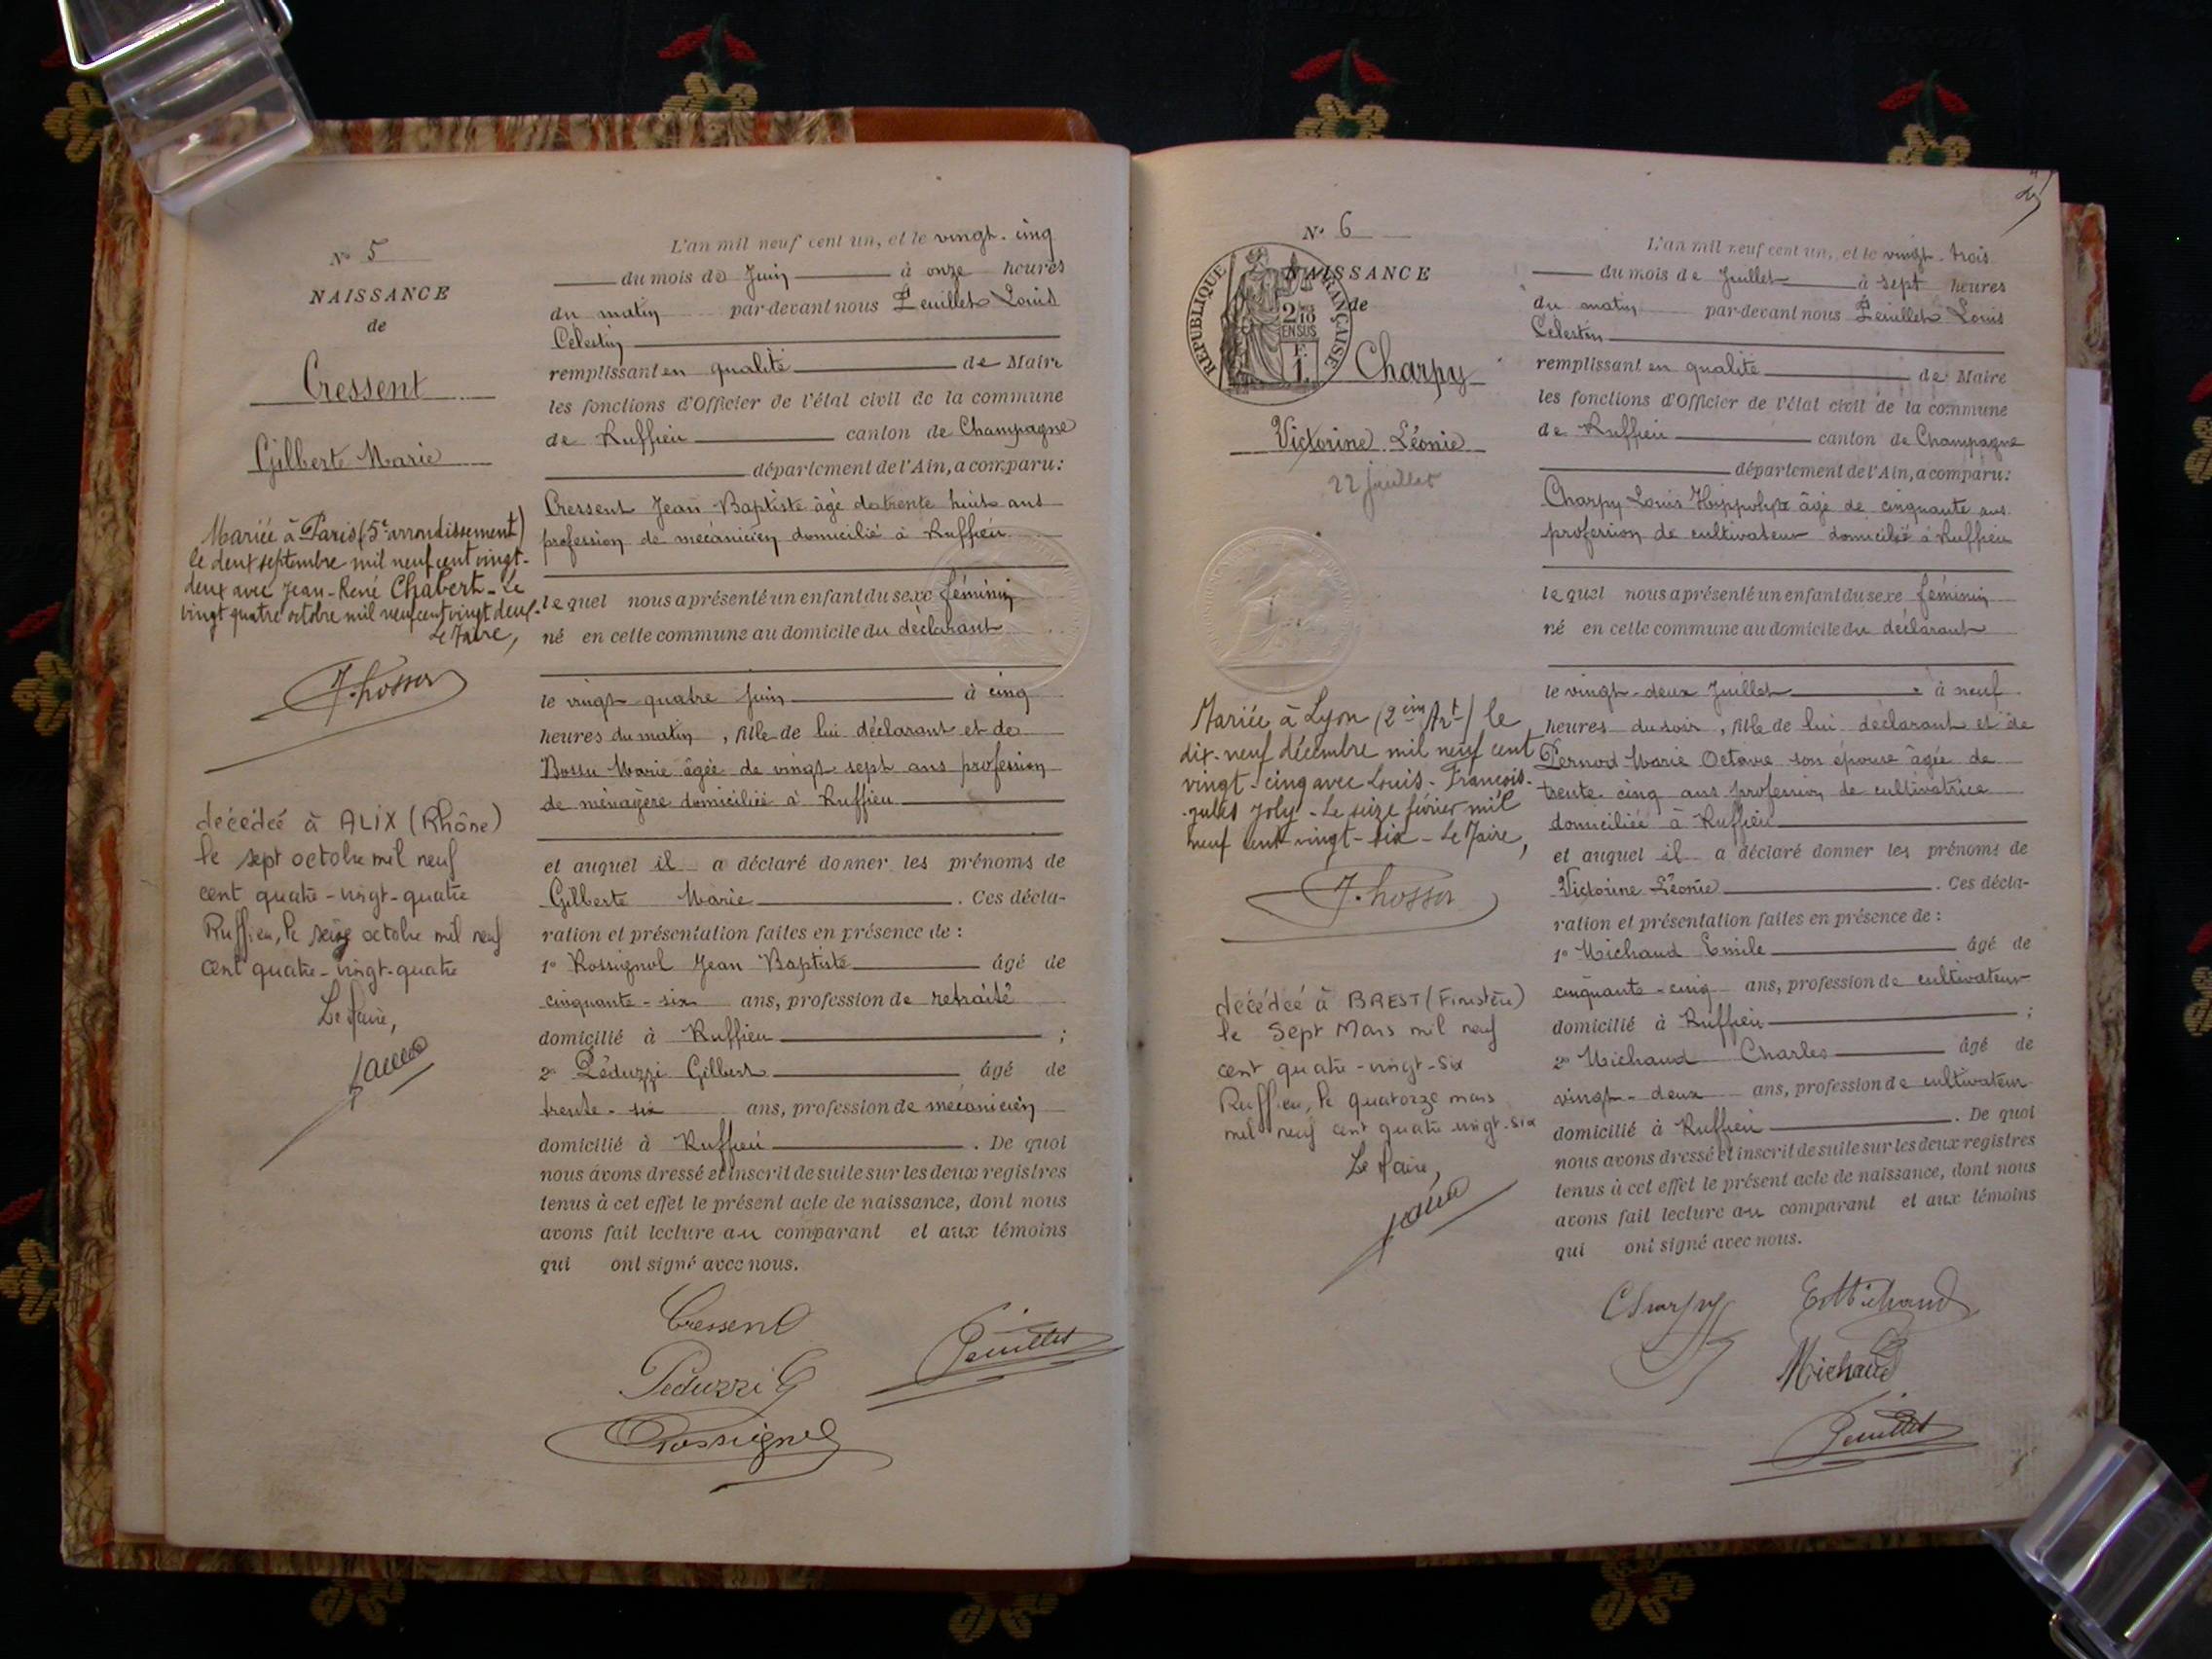 N° 5
NAISSANCE
de
Cressent
Gilberte Marie
Mariée à Paris (5e arrondissement)
le deux septembre mil neuf cent vingt-
deux avec Jean-René Chabert - Le
vingt quatre octobre mil neuf cent vingt deux.
Le Maire,
décédée à ALIX (Rhône)
le sept octobre mil neuf
cent quatre-vingt-quatre
Ruffieu, le seize octobre mil neuf
cent quatre-vingt-quatre
Le Maire,
L'an mil neuf cent un, et le vingt-cinq
du mois de Juin à onze heures
du matin par-devant nous Peuillet Louis
Célestin
remplissant en qualité de Maire
les fonctions d'Officier de l'état civil de la commune
de Ruffieu canton de Champagne
département de l'Ain, a comparu:
Cressent Jean Baptiste âgé de trente huit ans
profession de mécanicien domicilié à Ruffieu
lequel nous a présenté un enfant du sexe féminin
né en cette commune au domicile du déclarant
le vingt quatre Juin à cinq
heures du matin, fille de lui déclarant et de
Bossu Marie âgée de vingt sept ans profession
de ménagère domiciliée à Ruffieu
et auquel il a déclaré donner les prénoms de
Gilberte Marie. Ces décla-
ration et présentation faites en présence de :
1° Rossignol Jean Baptiste âgé de
cinquante-six ans, profession de retraité
domicilié à Ruffieu ;
2° Péduzzi Gilbert âgé de
trente-six ans, profession de mécanicien
domicilié à Ruffieu. De quoi
nous avons dressé et inscrit de suite sur les deux registres
tenus à cet effet le présent acte de naissance, dont nous
avons fait lecture au comparant et aux témoins
qui ont signé avec nous.
Cressent
Peduzzi G
Peuillet
Rossignol
N° 6
REPUBLIQUE FRANÇAISE
2/10
EN SUS
NAISSANCE
de
Charpy
Victorine Léonie
22 juillet
Mariée à Lyon (2ème Art) le
dix-neuf décembre mil neuf cent
vingt-cinq avec Louis-François-
Jules Joly - Le seize février mil
neuf cent vingt-six - Le Maire,
décédée à BREST (Finistère)
le Sept Mars mil neuf
cent quatre-vingt-six
Ruffieu, le quatorze mars
mil neuf cent quatre vingt-six
Le Maire,
L'an mil neuf cent un, et le vingt-trois
du mois de Juillet à sept heures
du matin par-devant nous Peuillet Louis
Célestin
remplissant en qualité de Maire
les fonctions d'Officier de l'état civil de la commune
de Ruffieu canton de Champagne
département de l'Ain, a comparu:
Charpy Louis Hyppolyte âgé de cinquante ans
profession de cultivateur domicilié à Ruffieu
lequel nous a présenté un enfant du sexe féminin
né en cette commune au domicile du déclarant
le vingt-deux Juillet à neuf
heures du soir, fille de lui déclarant et de
Pernod Marie Octavie son épouse âgée de
trente cinq ans profession de cultivatrice
domiciliée à Ruffieu
et auquel il a déclaré donner les prénoms de
Victorine Léonie. Ces décla-
ration et présentation faites en présence de :
1° Michaud Emile âgé de
cinquante-cinq ans, profession de cultivateur
domicilié à Ruffieu ;
2° Michaud Charles âgé de
vingt-deux ans, profession de cultivateur
domicilié à Ruffieu. De quoi
nous avons dressé et inscrit de suite sur les deux registres
tenus à cet effet le présent acte de naissance, dont nous
avons fait lecture au comparant et aux témoins
qui ont signé avec nous.
Charpy
E Michaud
Michaud
Peuillet